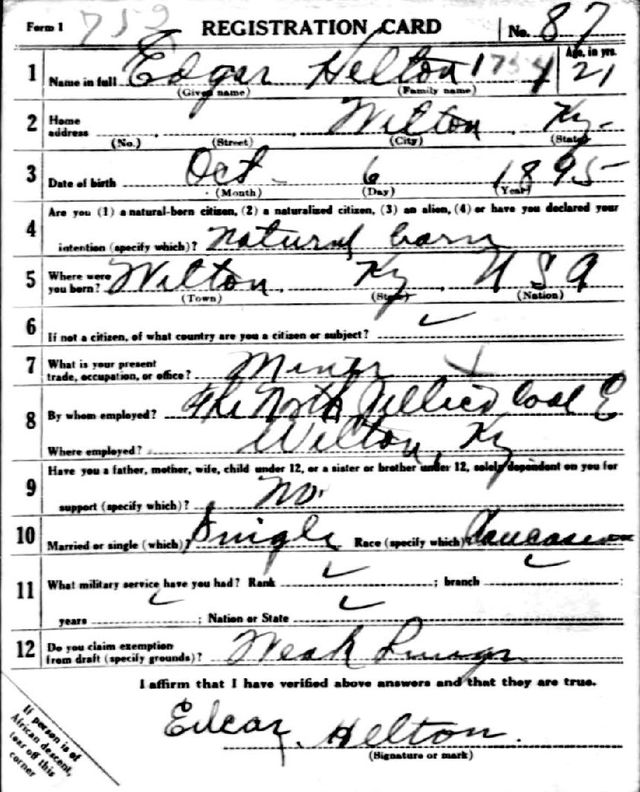 Form 1 752 REGISTRATION CARD No. 87
1 Name in full Edgar Helton 1754 Age, in yrs. 21
(Given name) (Family name)
2 Home address Wilton, Ky.
(No.) (Street) (City) (State)
3 Date of birth Oct 6 1895
(Month) (Day) (Year)
4 Are you (1) a natural-born citizen, (2) a naturalized citizen, (3) an alien, (4) or have you declared your
intention (specify which)? natural born
5 Where were you born? Wilton, Ky, U S A
(Town) (State) (Nation)
6 If not a citizen, of what country are you a citizen or subject? ✓
7 What is your present trade, occupation, or office? Miner
8 By whom employed? The North Jellico Coal
Where employed? Wilton, Ky
9 Have you a father, mother, wife, child under 12, or a sister or brother under 12, solely dependent on you for
support (specify which)? No.
10 Married or single (which)? Single Race (specify which)? Caucasian
11 What military service have you had? Rank ✓ ; branch ✓
years ✓ ; Nation or State ✓
12 Do you claim exemption from draft (specify grounds)? Weak Lungs
I affirm that I have verified above answers and that they are true.
Edgar Helton.
(Signature or mark)
If person is of
African descent,
tear off this
corner